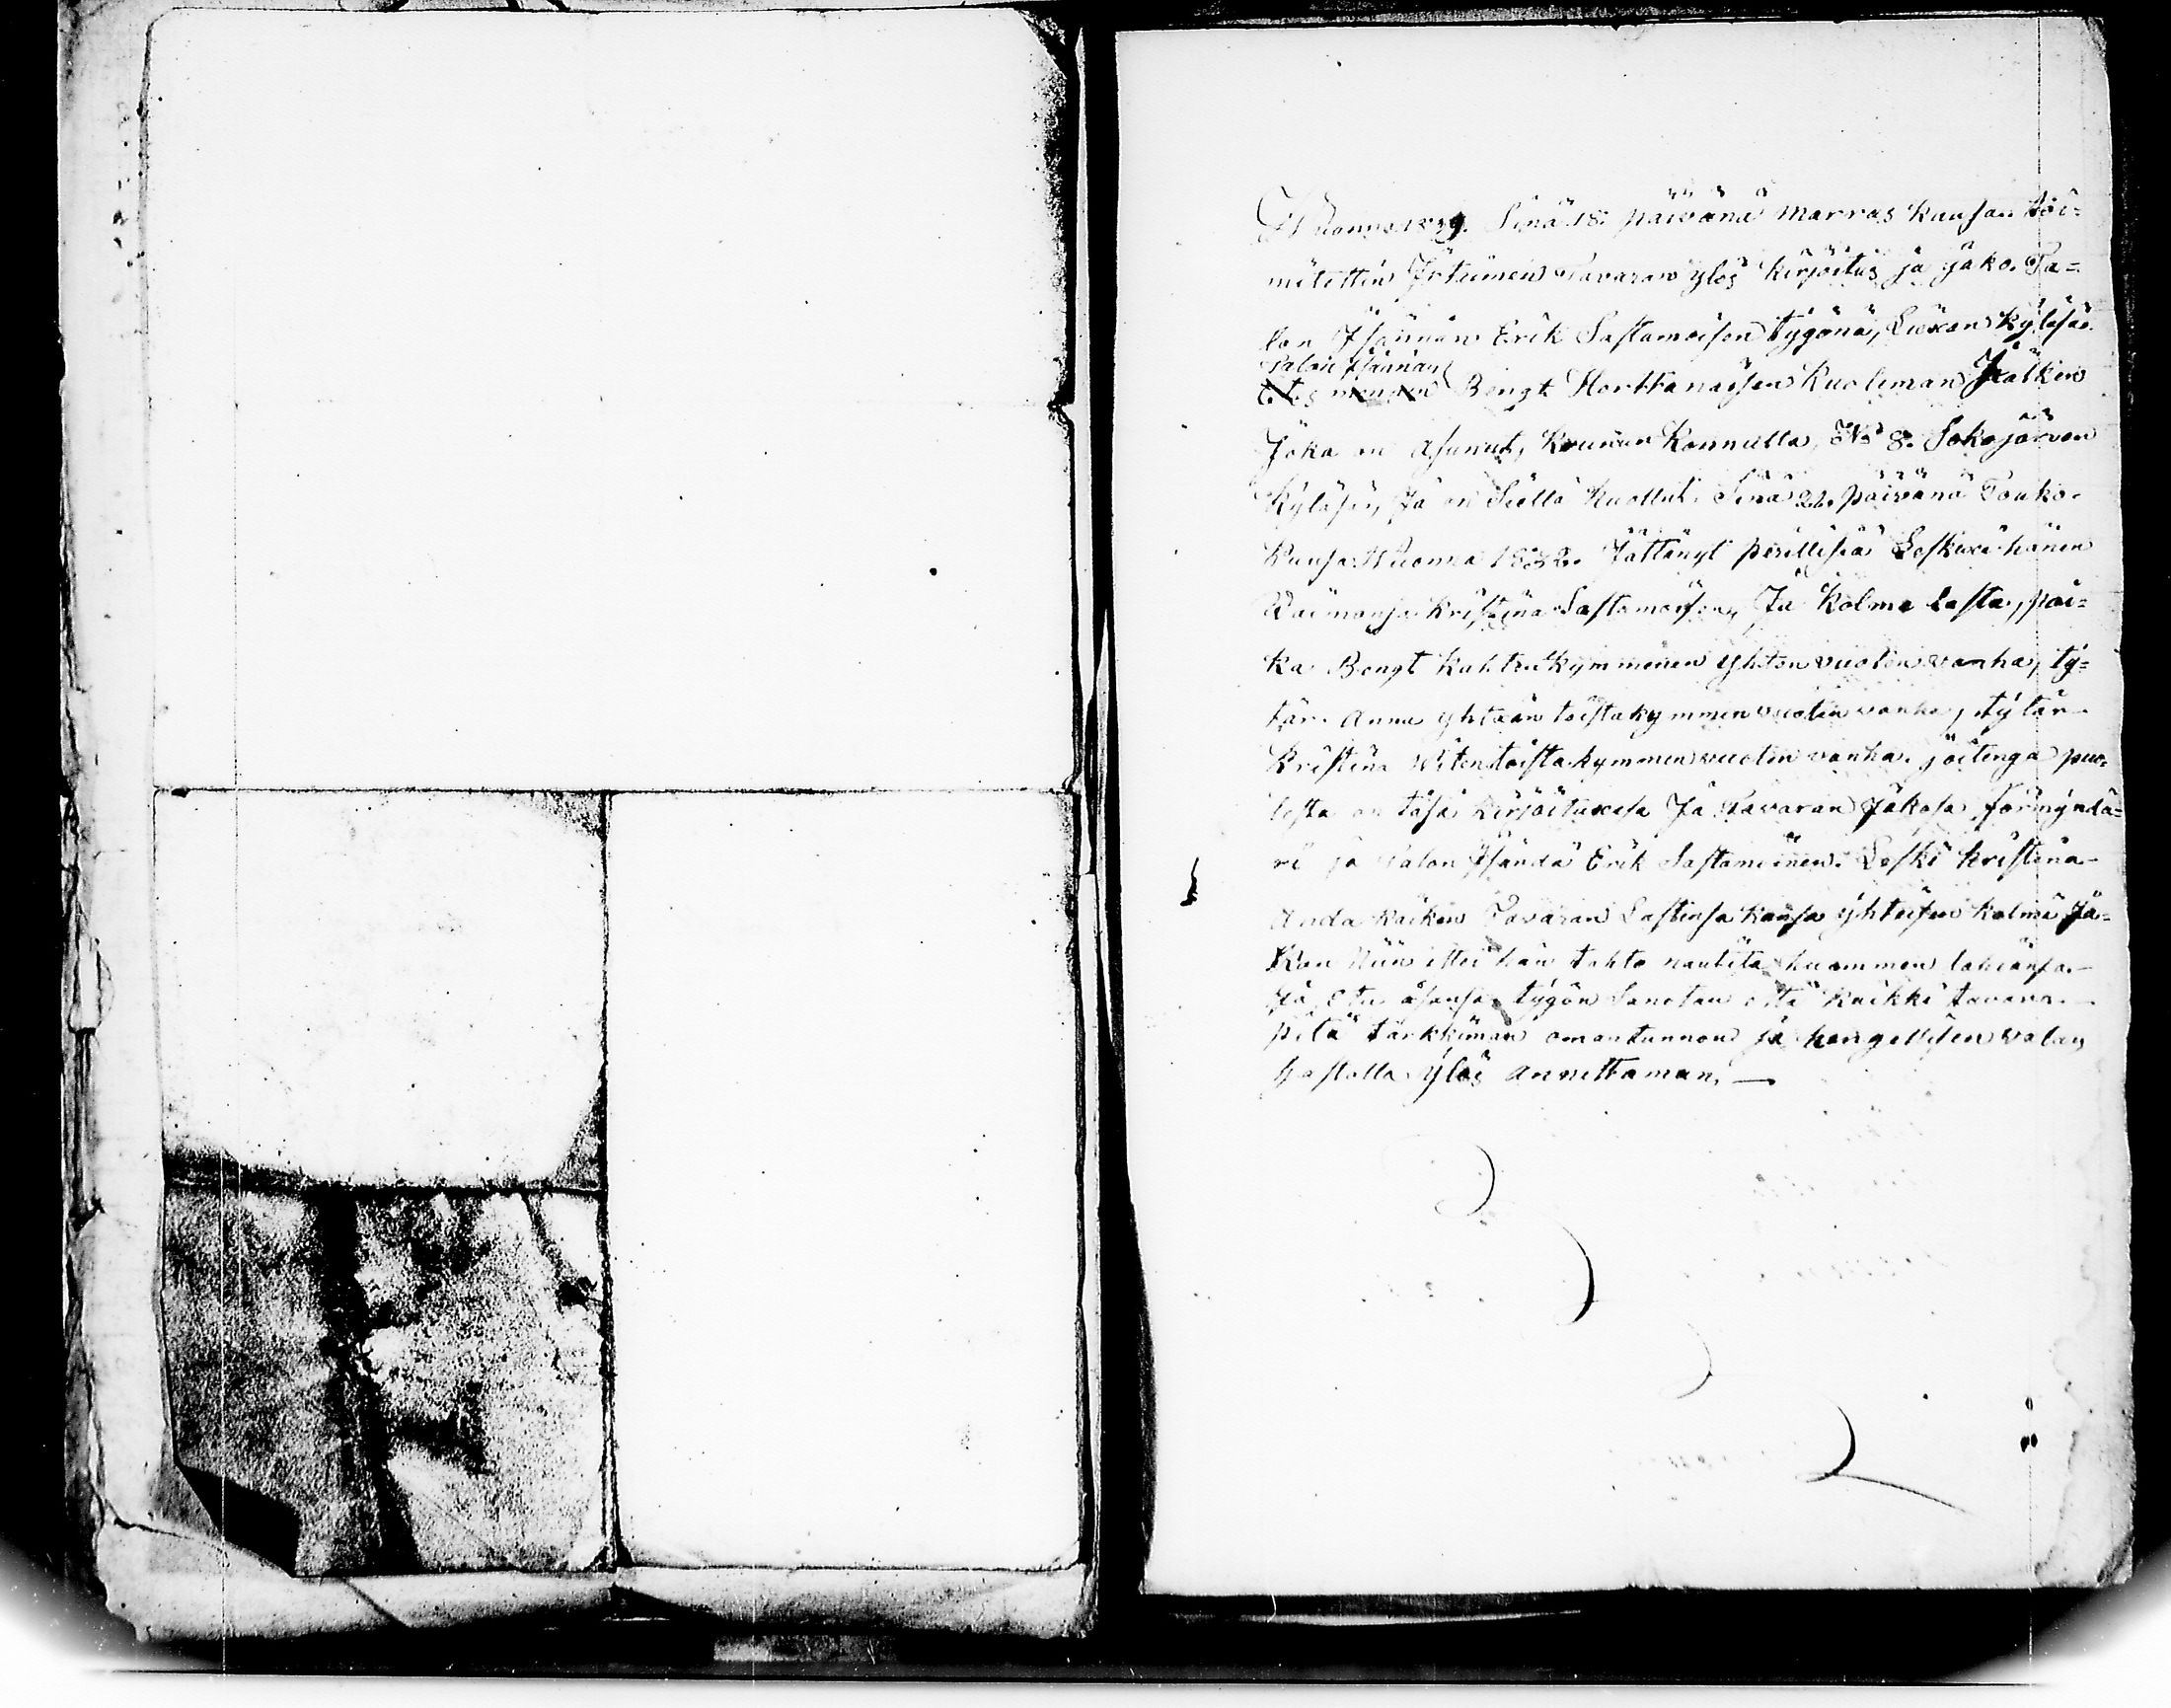 Wuonna 1839. Sinä 18. päivänä Marras kuusan toi=
mitettin Jrtuimen Tavaran ylös kirjoitus ja jako. Ta=
lon Jsännän Erik Sastamoisen tygönä, Liexan kyläsä
Talon Jsännän
Etes mennen Bengt Horttanaisen kuoleman Jälken
Joka on Asunut, kruunun konnulla, No 8. Sokojärven
kyläsä, Ja on Siellä kuollut. Sinä 22. päivänä Touko-
kuusa Wuonna 1832. Jättänyt perillisiä Leskexi hänen
Waimonsa Kristina Sastamoisen, Ja kolme lasta, poi=
ka Bengt kahtenkymmenen yhten vuoten vanha, ty=
tär. Anna yhtexän toistakymmen vuoten vanha, tytär
Kristina Witentoistakymmen vuoten vanha. joitenga puo-
lesta on täsä kirjoituxesa Ja Tavaran Jakosa förmyndä=
ri ja Talon Jsändä Erik Sastamoinen. Leski Kristina
Anda kaiken Tavaran Lastensa kansa yhteisen kolme Ja=
kon Niin ettei hän tahto nautita huommen lahiansa
Ja Etu osansa, tygön Sanotan että kaikki tavara
pitä tarkkiman omantunnon ja hengellisen valan
Hastolla ylös Annettaman. —